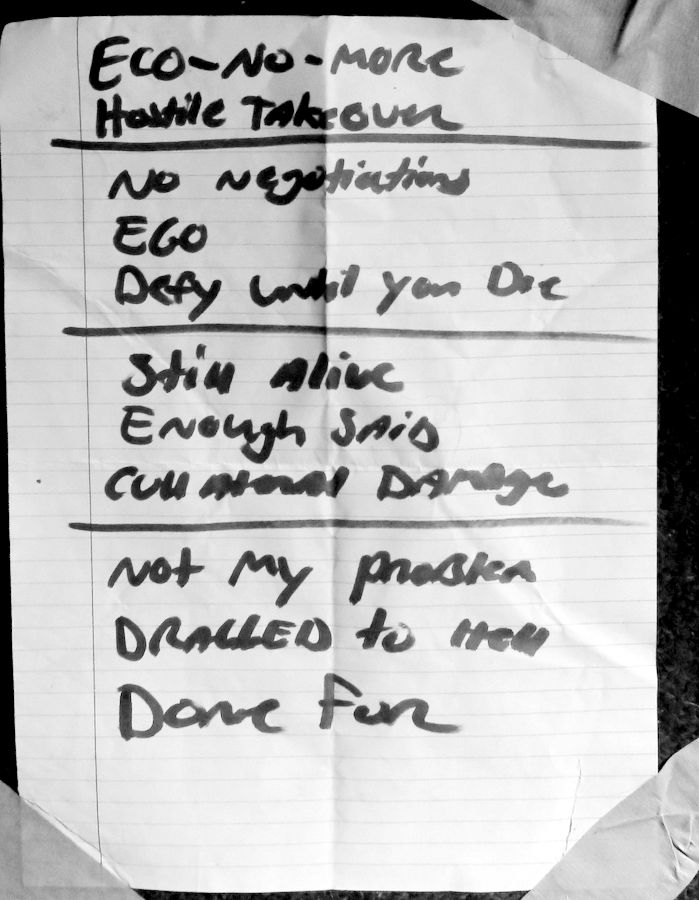 ECO-NO-MORE
Hostile TAKEOVER
No Negotiations
EGO
Defy until you Die
Still Alive
ENough SAiD
Cullateral DAmage
Not My problem
DRAGGED to Hell
Done For